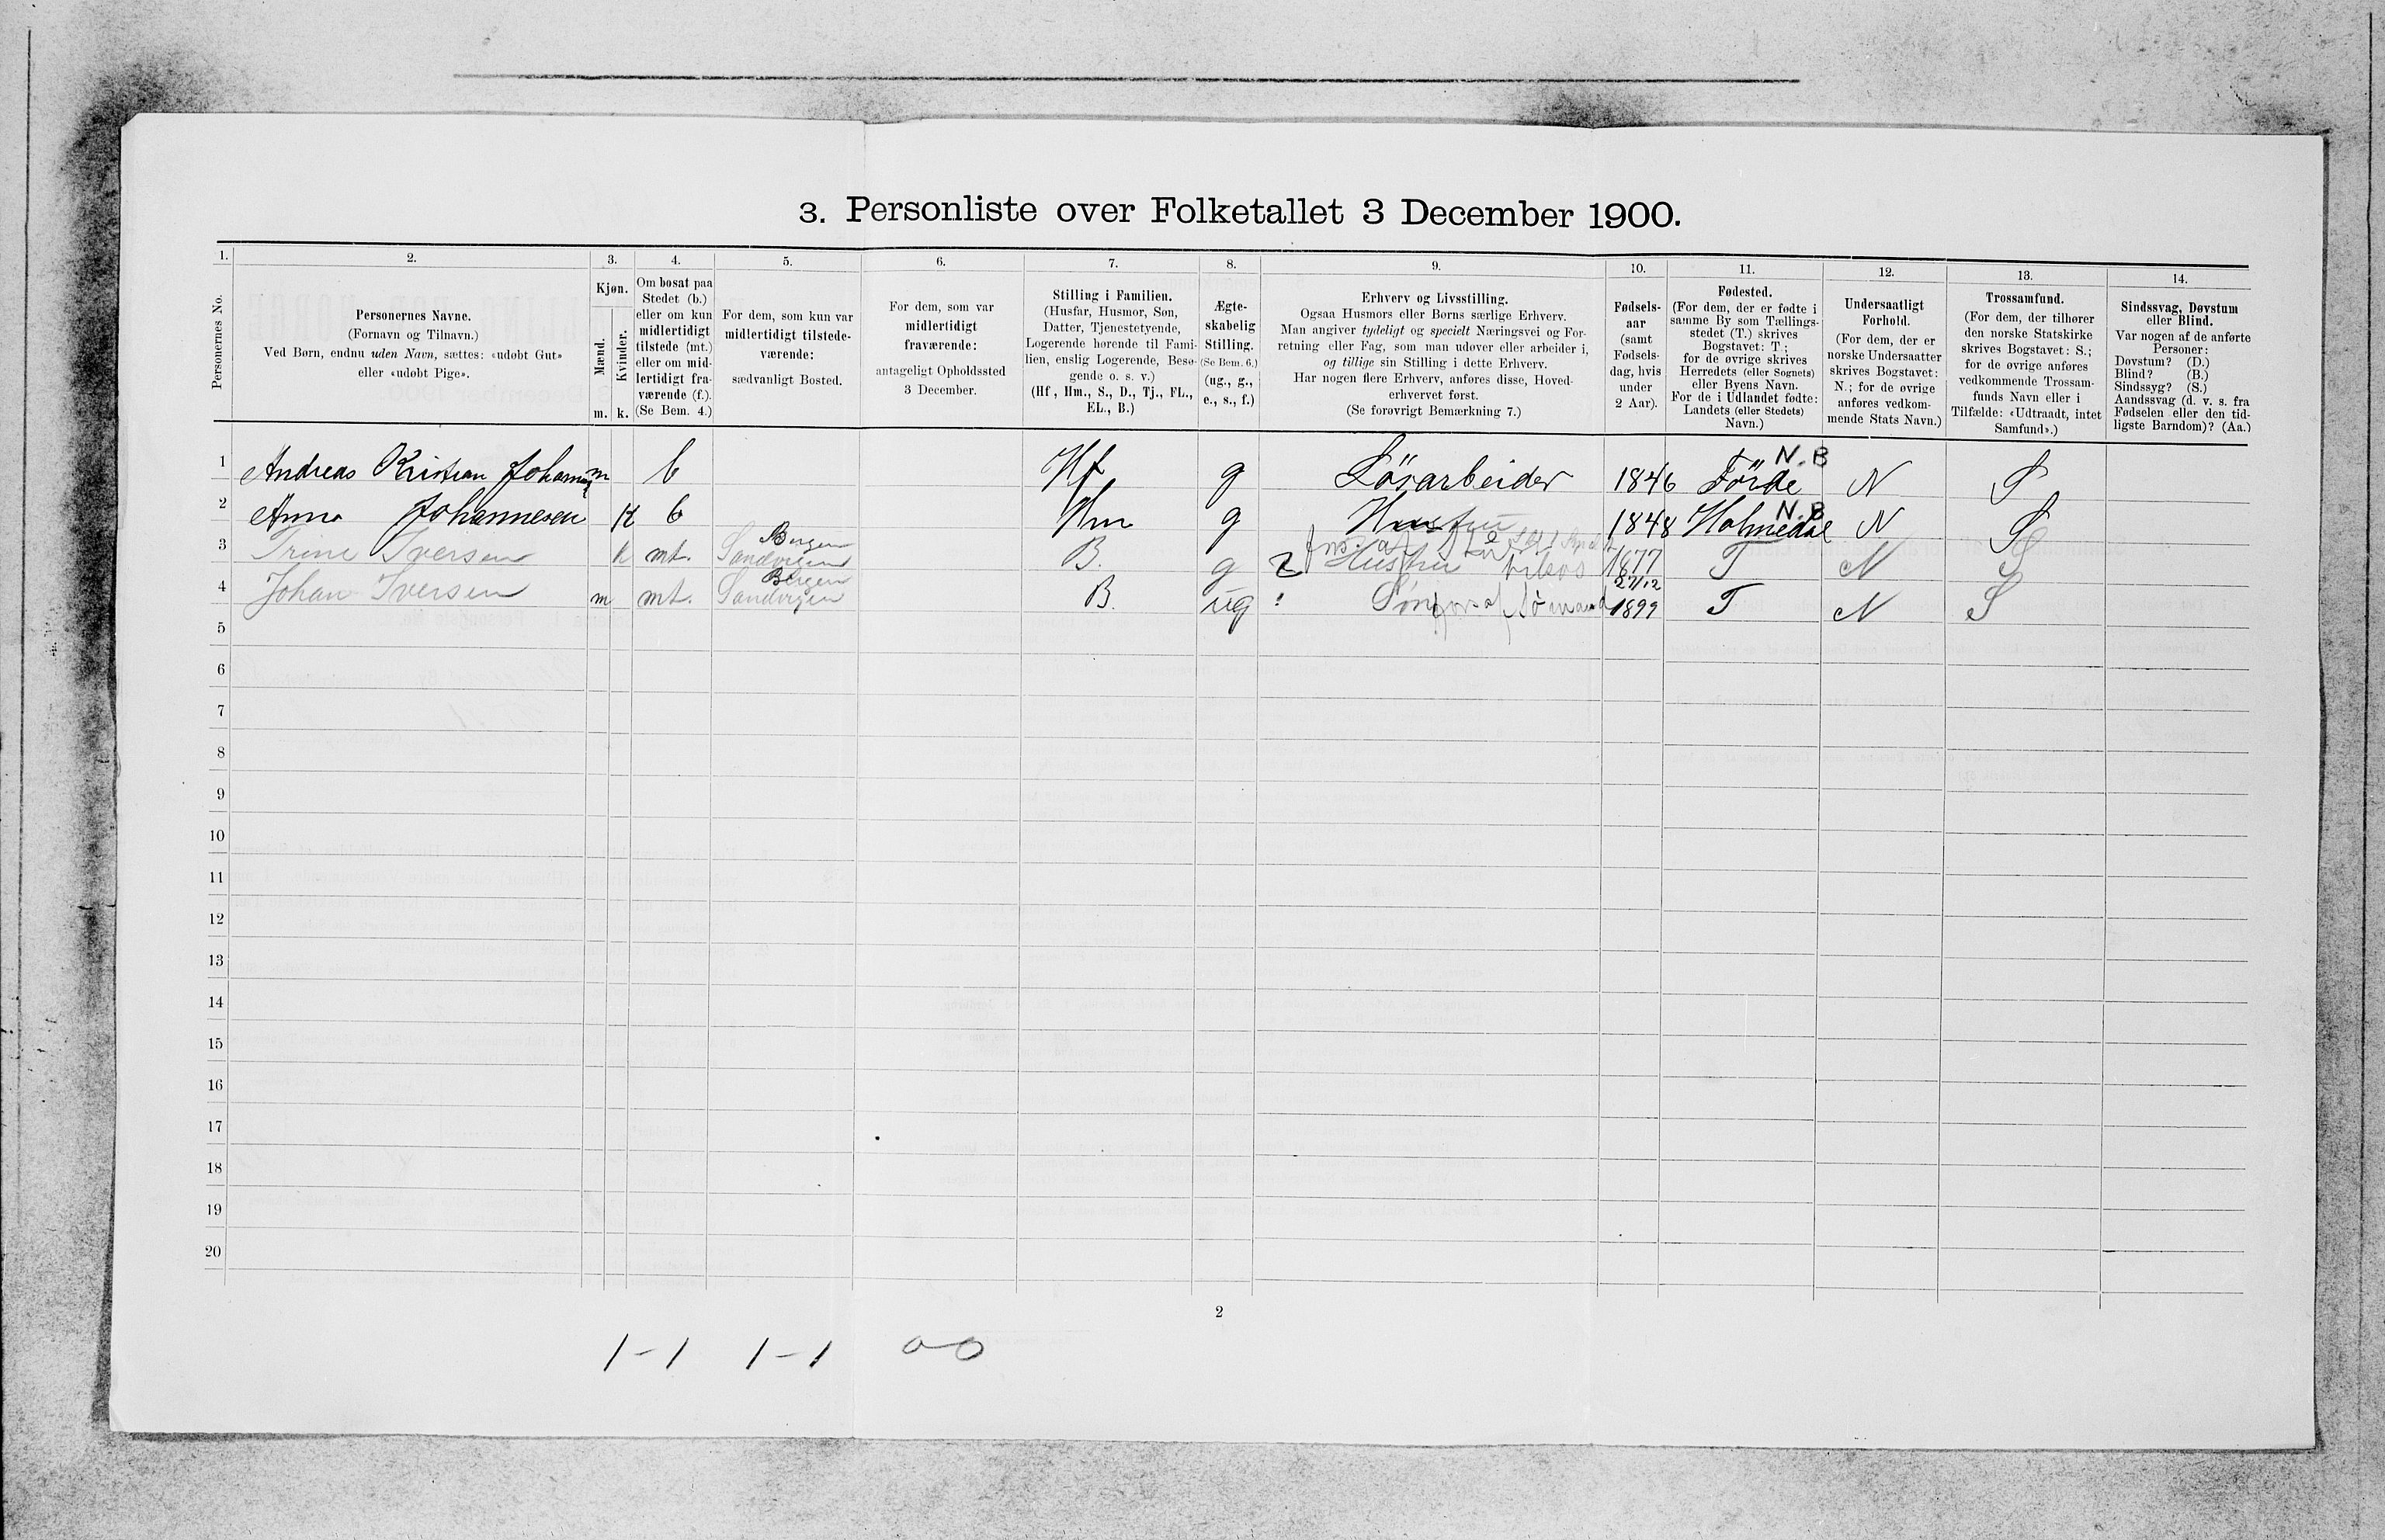 3. Personliste over Folketallet 3 December 1900.
1. 2. 3. 4. 5. 6. 7. 8. 9. 10. 11. 12. 13. 14.
Personernes No.
Personernes Navne.
(Fornavn og Tilnavn.)
Ved Børn, endnu uden Navn, sættes: «udøbt Gut»
eller «udøbt Pige».
Kjøn.
Mænd.
Kvinder.
m. k.
Om bosat paa
Stedet (b.)
eller om kun
midlertidigt
tilstede (mt.)
eller om mid-
lertidigt fra-
værende (f.).
(Se Bem. 4.)
For dem, som kun var
midlertidigt tilstede-
værende:
sædvanligt Bosted.
For dem, som var
midlertidigt
fraværende:
antageligt Opholdssted
3 December.
Stilling i Familien.
(Husfar, Husmor, Søn,
Datter, Tjenestetyende,
Logerende hørende til Fami-
lien, enslig Logerende, Besø-
gende o. s. v.)
(Hf., Hm., S., D., Tj., FL.,
EL., B.)
Ægte-
skabelig
Stilling.
(Se Bem. 6.)
(ug., g.,
e., s., f.)
Erhverv og Livsstilling.
Ogsaa Husmors eller Børns særlige Erhverv.
Man angiver tydeligt og specielt Næringsvei og For-
retning eller Fag, som man udøver eller arbeider i,
og tillige sin Stilling i dette Erhverv.
Har nogen flere Erhverv, anføres disse, Hoved-
erhvervet først.
(Se forøvrigt Bemærkning 7.)
Fødsels-
aar
(samt
Fødsels-
dag, hvis
under
2 Aar).
Fødested.
(For dem, der er fødte i
samme By som Tællings-
stedet (T.) skrives
Bogstavet: T.;
for de øvrige skrives
Herredets (eller Sognets)
eller Byens Navn.
For de i Udlandet fødte:
Landets (eller Stedets)
Navn.)
Undersaatligt
Forhold.
(For dem, der er
norske Undersaatter
skrives Bogstavet:
N.; for de øvrige
anføres vedkom-
mende Stats Navn.)
Trossamfund.
(For dem, der tilhører
den norske Statskirke
skrives Bogstavet: S.;
for de øvrige anføres
vedkommende Trossam-
funds Navn eller i
Tilfælde: «Udtraadt, intet
Samfund».)
Sindssvag, Døvstum
eller Blind.
Var nogen af de anførte
Personer:
Døvstum? (D.)
Blind? (B.)
Sindssyg? (S.)
Aandssvag (d. v. s. fra
Fødselen eller den tid-
ligste Barndom)? (Aa.)
N.B
1 Andreas Kristian m b Hf g Løsarbeider 1846 Förde N S
N.B
2 Anna Johannesen k b Hm g Hustru 1848 Holmedal N S
Bergen
3 Trine Iversen k mt. Sandvigen B. g Hustru 1877 T N S
Bergen 27/12
4 Johan Iversen m mt. Sandvigen B. ug Søn af Sømand 1899 T N S
5
6
7
8
9
10
11
12
13
14
15
16
17
18
19
20
2
1-1 1-1 00